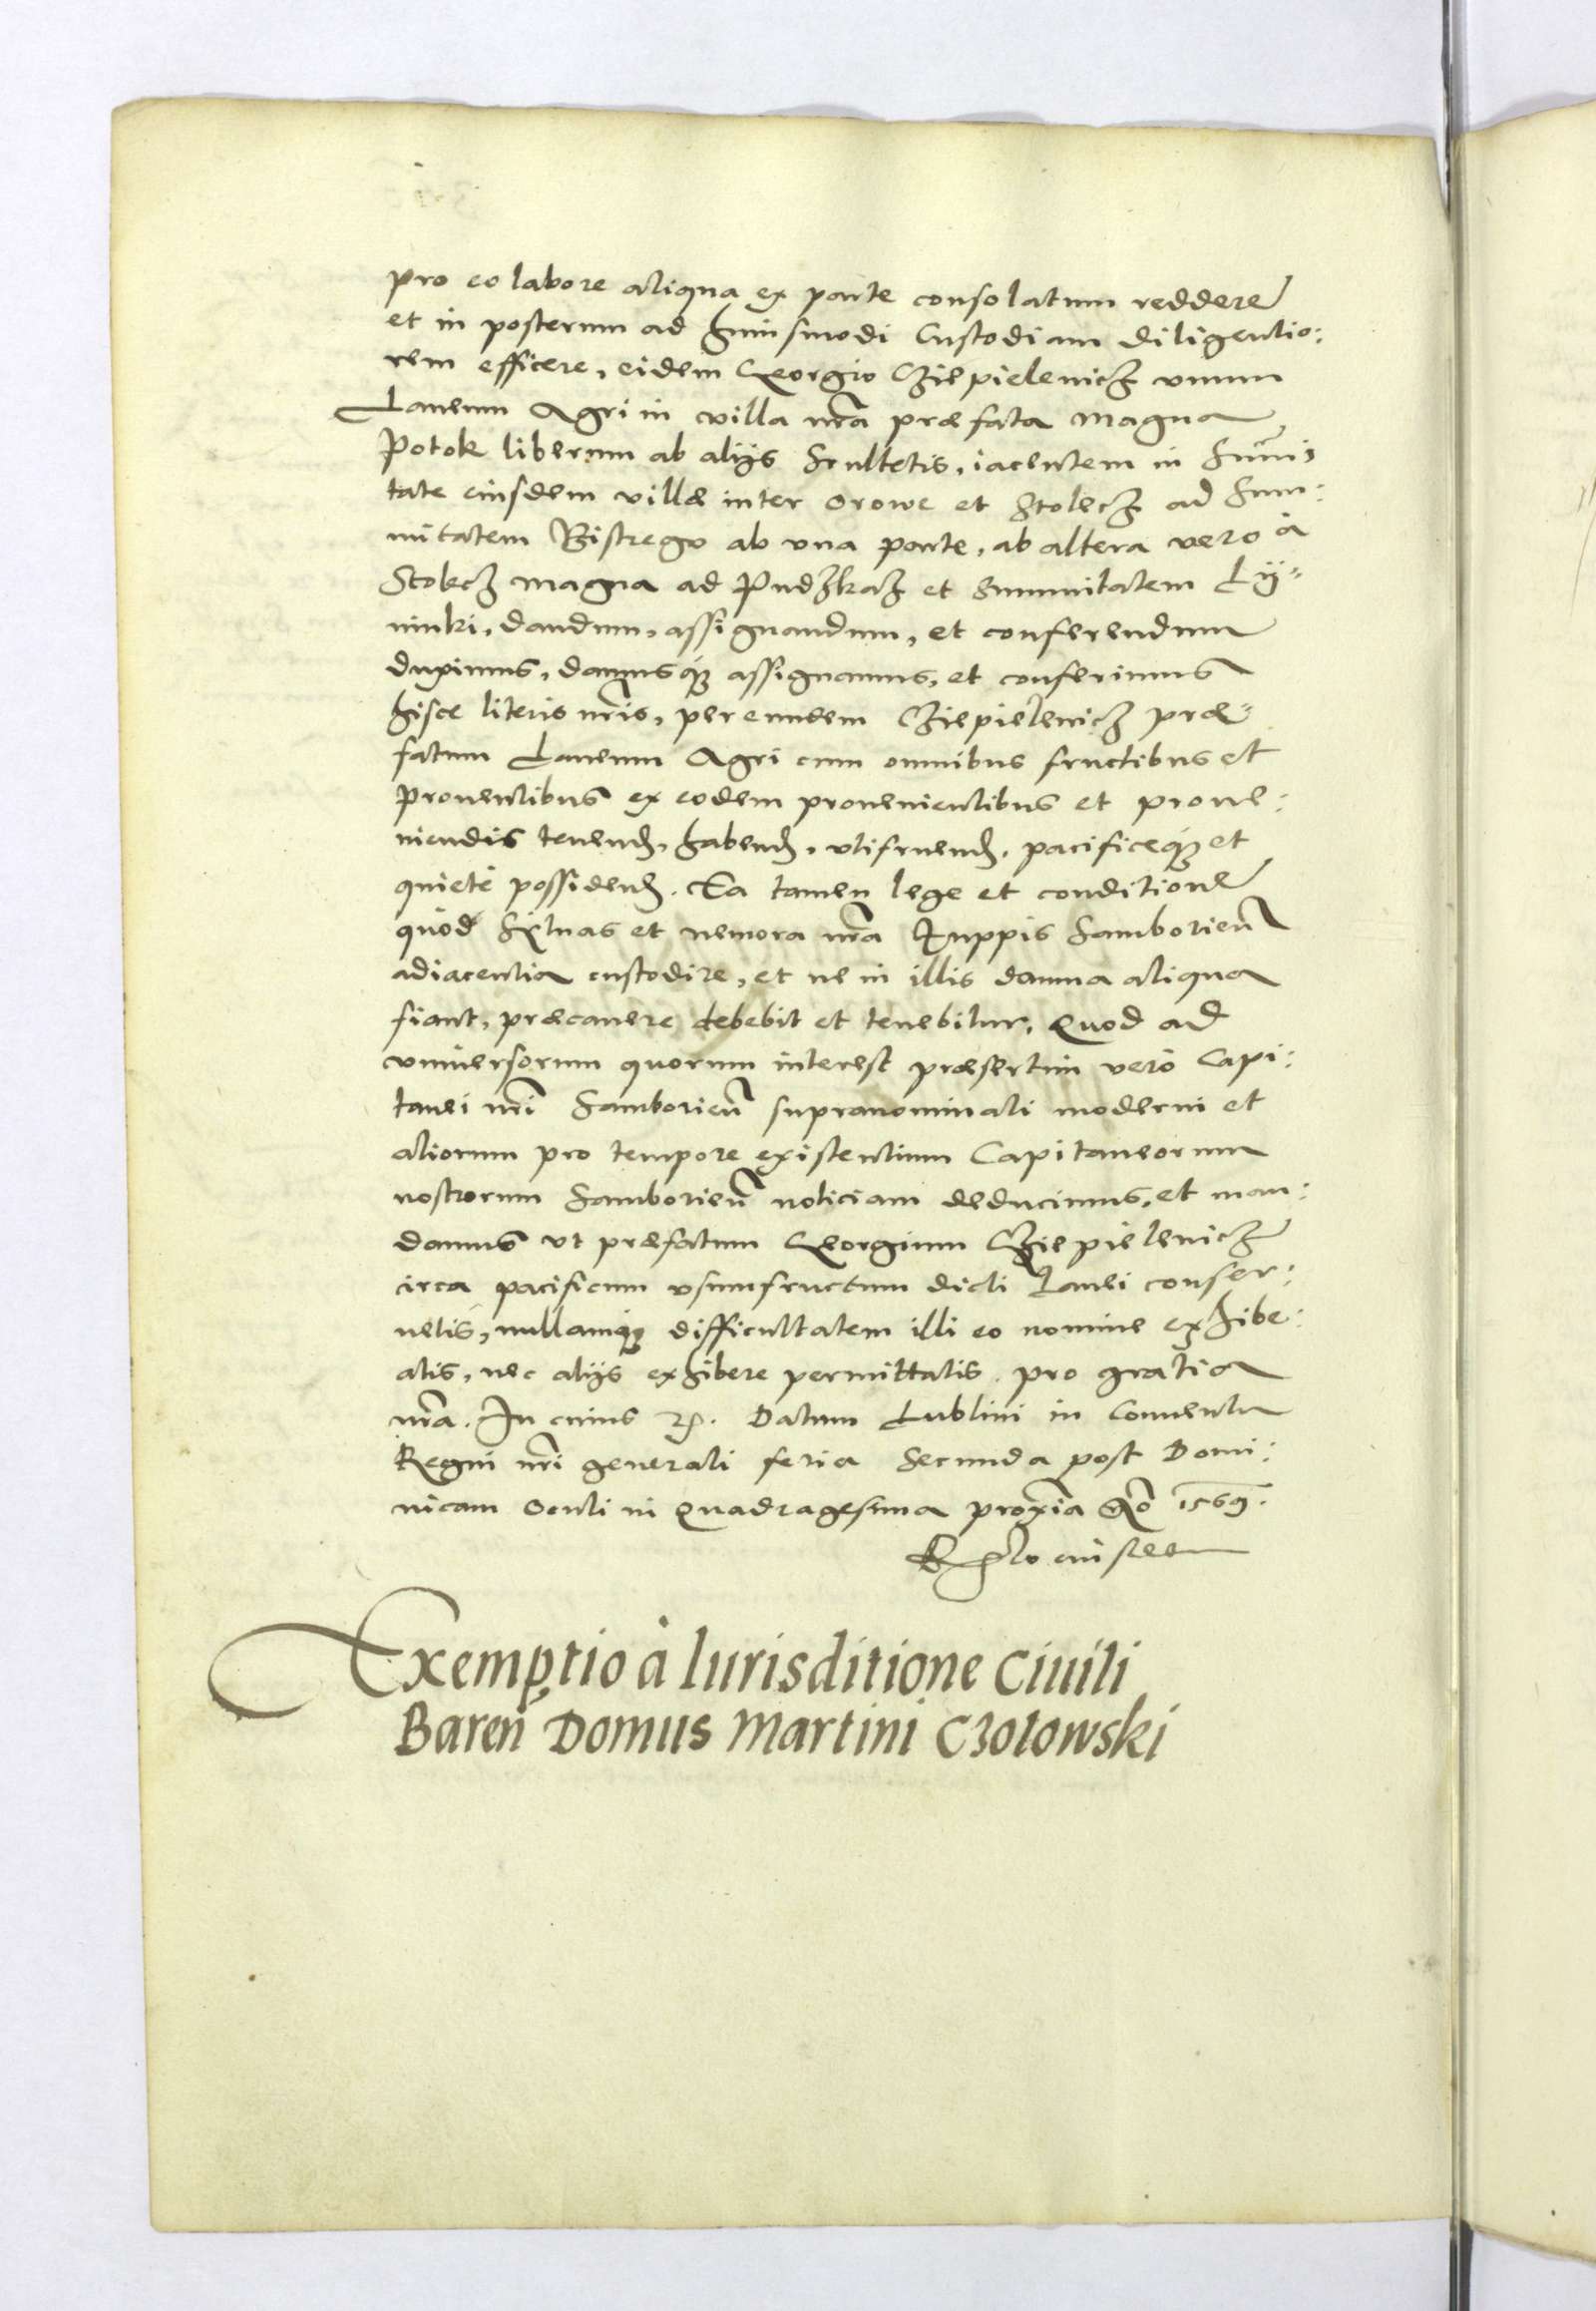 pro eo labore aliqua ex parte consolatum reddere
et in posterum ad huiusmodi Custodiam diligentio:
rem efficere, eidem Georgio Cziepielenicz vnum
Laneum Agri in villa nrã præfata magna
Potok liberum ab alijs Scultetis, iacentem in Sum̃i
tate eiusdem villæ inter Orowe et Stolecz ad Sum:
mitatem Bistrego ab vna parte, ab altera vero à
Stokcz magna ad Pudzkacz et Summitatem Ly=
ninki, dandum, assignandum, et conferendum
duximus, damusq́ʒ assignamus, et conferimus
hisce literis nr̃is, per eundem Cziepielenicz præ=
fatum Laneum Agri cum omnibus fructibus et
prouentibus ex eodem prouenientibus et proue:
niendis tenend, habend, vtifruend, pacificeq́ʒ et
quietè possidend. Ea tamen lege et conditione
quòd Sÿluas et nemora nrã Zuppis Samborieñ
adiacentia custodire, et ne in illis damna aliqua
fiant, præcauere debebit et tenebitur, Quod ad
vniuersorum quorum interest præsertim verò Capi:
tanei nr̃i Samborieñ supranominati moderni et
aliorum pro tempore existentium Capitaneorum
nostrorum Samborieñ noticiam deducimus, et man:
damus vt præfatum Georgium Cziepielenicz
circa pacificum vsumfructum dicti Lanei conser:
uetis, nullamq́ʒ difficultatem illi eo nomine exhibe:
atis, nec alijs exhibere permittatis. pro gratia
nrã. In cuius rei. Datum Lublini in Conuentu
Regni nr̃i generali feria Secunda post Domi:
nicam Oculi in Quadragesima proxĩa Año 1569.
Exemptio à Iurisditione Ciuili
Bareñ Domus Martini Czolowski